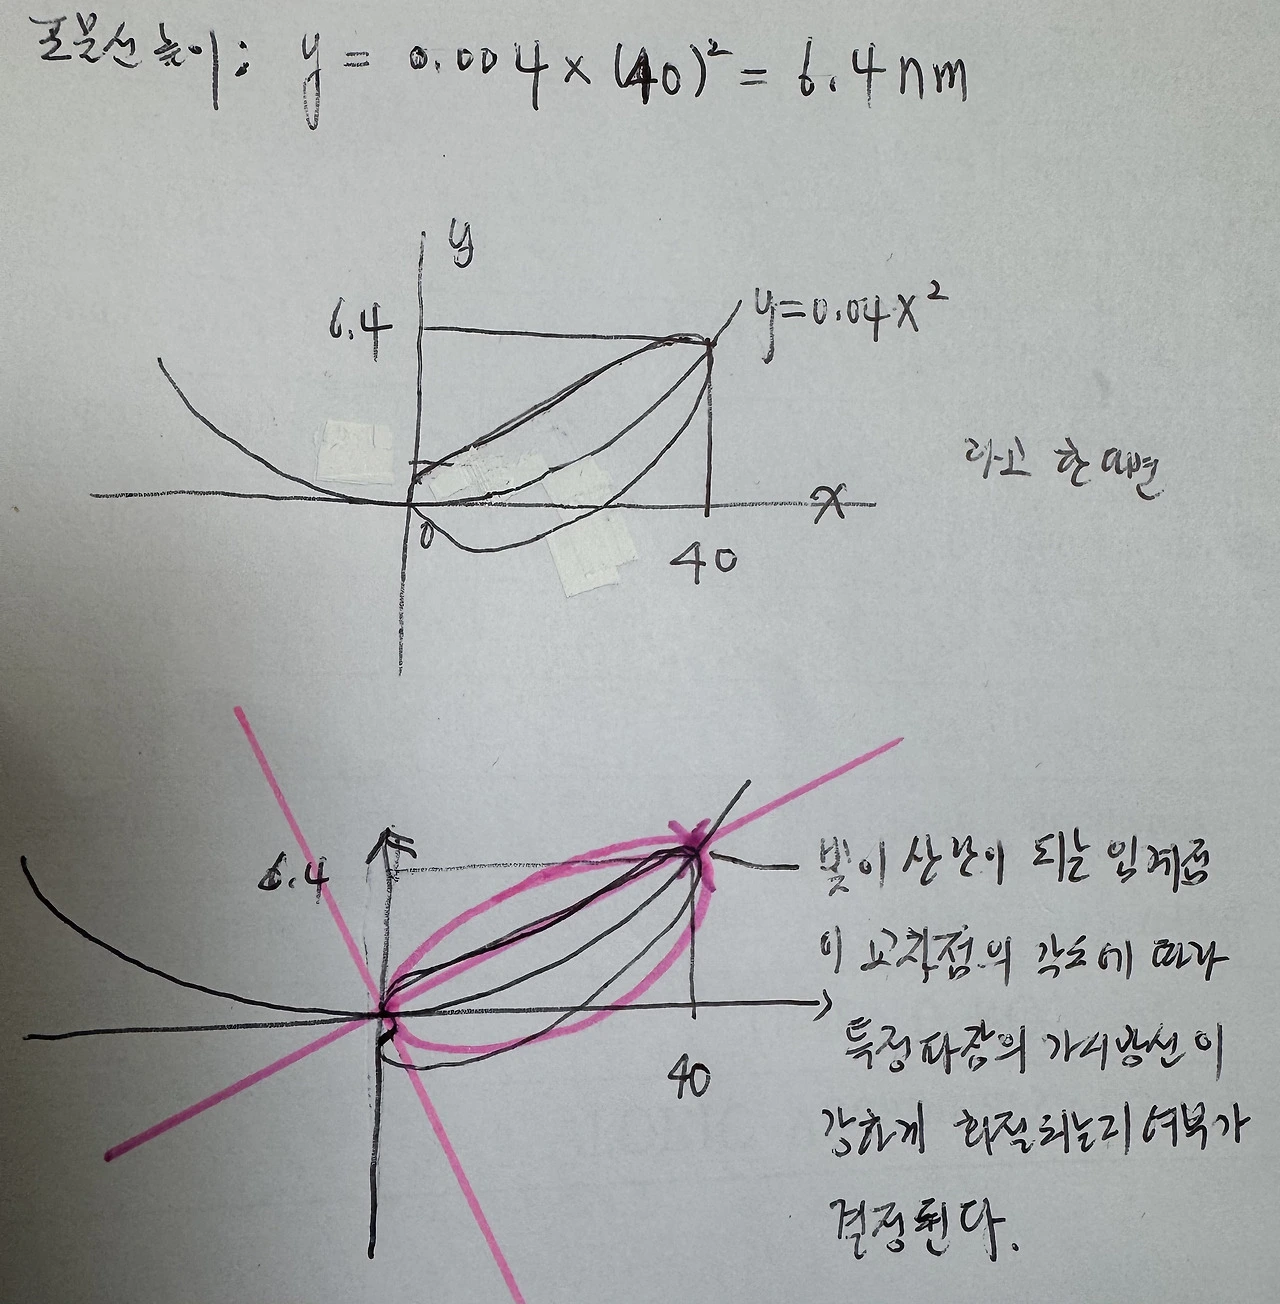 포물선 높이: y = 0.004 × (40)² = 6.4 nm
y
6.4
y=0.04x²
라고 한다면
x
0
40
6.4
빛이 산란이 되는 임계점
이 교차점의 각도에 따라
특정파장의 가시광선이
40
강하게 회절되는지 여부가
결정된다.